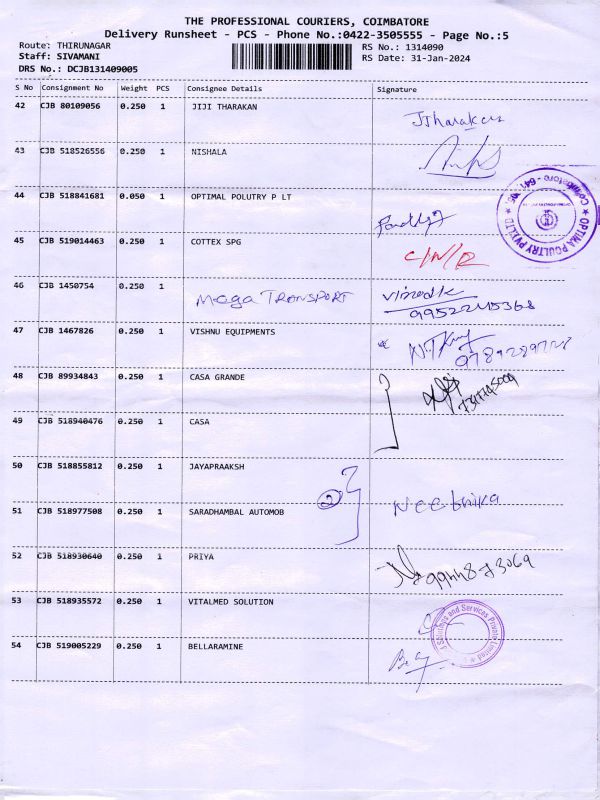 THE PROFESSIONAL COURIERS, COIMBATORE
Delivery Runsheet - PCS - Phone No.:0422-3505555 - Page No.:5
Route: THIRUNAGAR RS No.: 1314090
Staff: SIVAMANI RS Date: 31-Jan-2024
DRS No.: DCJB131409005
S No Consignment No Weight PCS Consignee Details Signature
42 CJB 80109056 0.250 1 JIJI THARAKAN JTharakan
43 CJB 518526556 0.250 1 NISHALA
44 CJB 518841681 0.050 1 OPTIMAL POLUTRY P LT
★ OPTIMA POULTRY PVT LTD ★ Coimbatore - 641
45 CJB 519014463 0.250 1 COTTEX SPG C/N/R
46 CJB 1450754 0.250 1 Mega TRANSPORT
47 CJB 1467826 0.250 1 VISHNU EQUIPMENTS
48 CJB 89934843 0.250 1 CASA GRANDE
49 CJB 518940476 0.250 1 CASA
50 CJB 518855812 0.250 1 JAYAPRAAKSH
51 CJB 518977508 0.250 1 SARADHAMBAL AUTOMOB 2
52 CJB 518930640 0.250 1 PRIYA
53 CJB 518935572 0.250 1 VITALMED SOLUTION
and Services Private Limited
54 CJB 519005229 0.250 1 BELLARAMINE